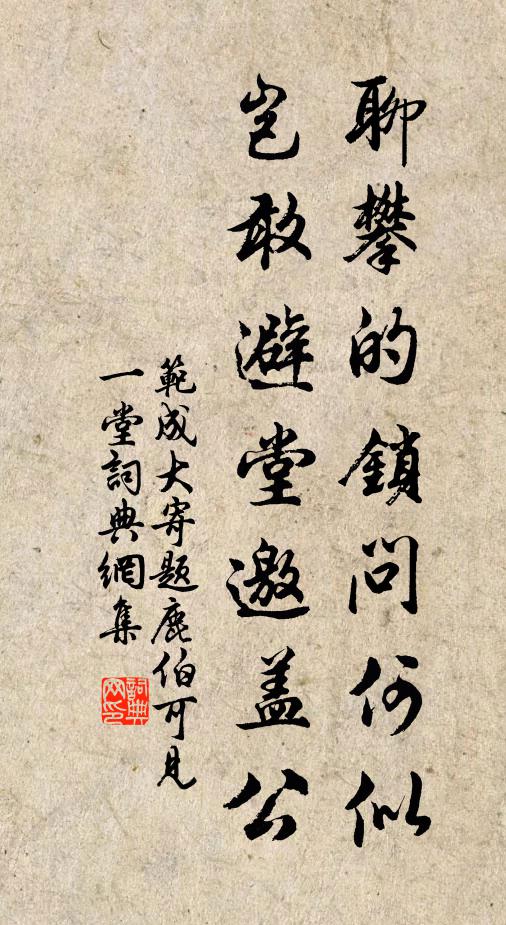 聊攀的鎖問何似
豈敢避堂邀蓋公
範成大寄題鹿伯可見
一堂詞典網集
詞典
网印